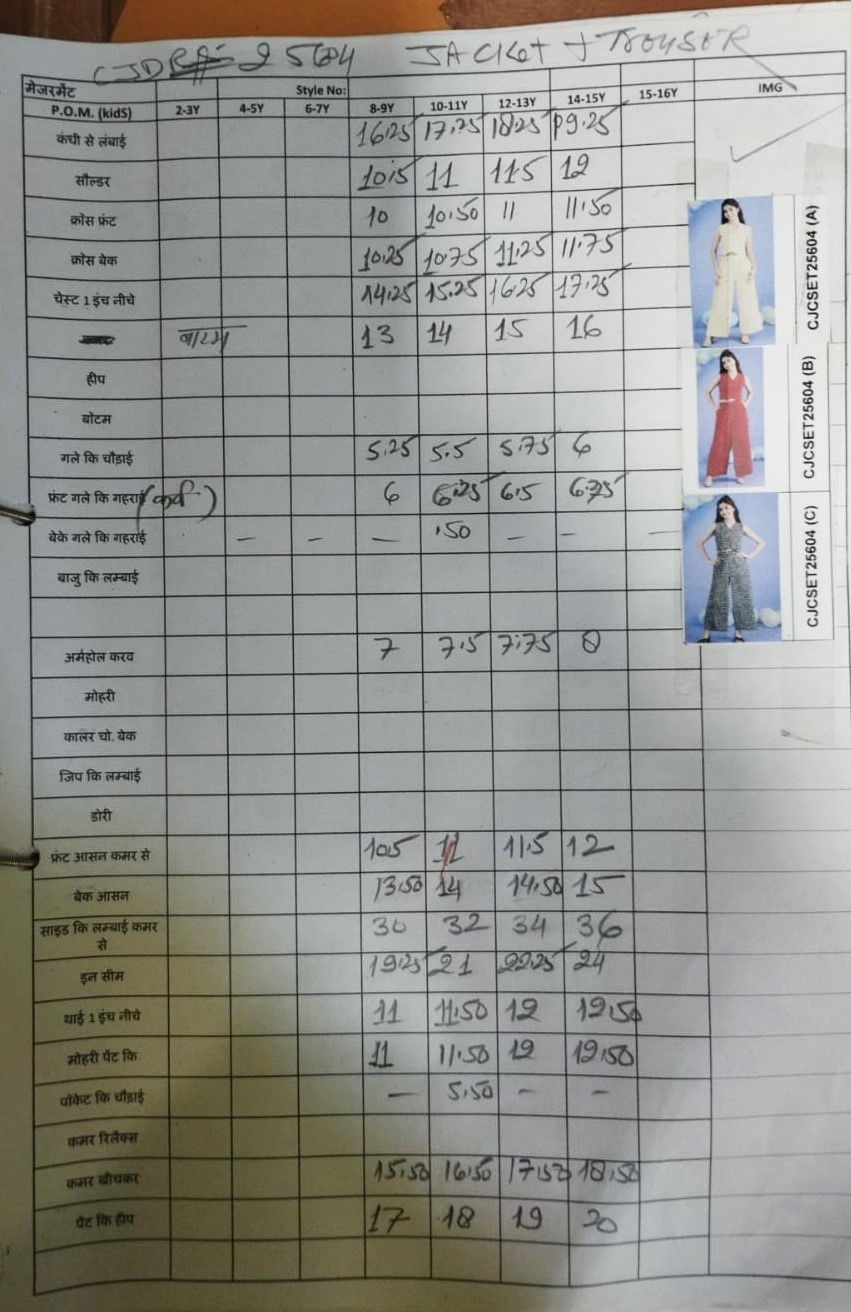 CJDRA- 25604 JACKET + TROUSER
मेजरमेंट Style No: IMG
P.O.M. (kidS) 2-3Y 4-5Y 6-7Y 8-9Y 10-11Y 12-13Y 14-15Y 15-16Y
कंधी से लंबाई 16.25 17.25 18.25 19.25
सौल्डर 10.5 11 11.5 12
क्रोस फ्रंट 10 10.50 11 11.50
क्रोस बेक 10.25 10.75 11.25 11.75
चेस्ट 1 इंच नीचे 14.25 15.25 16.25 17.25
13 14 15 16
हीप
बोटम
गले कि चौड़ाई 5.25 5.5 5.75 6
फ्रंट गले कि गहराई (कर्व) 6 6.25 6.5 6.75
बेके गले कि गहराई - - - .50 - - -
बाजु कि लम्बाई
अर्महोल करव 7 7.5 7.75 8
मोहरी
कालर चो. बेक
जिप कि लम्बाई
डोरी
फ्रंट आसन कमर से 10.5 11 11.5 12
बेक आसन 13.50 14 14.50 15
साइड कि लम्बाई कमर से 30 32 34 36
इन सीम 19.25 21 22.25 24
थाई 1 इंच नीचे 11 11.50 12 12.50
मोहरी पेंट कि 11 11.50 12 12.50
पोकेट कि चौड़ाई - 5.50 - -
कमर रिलैक्स
कमर खीचकर 15.50 16.50 17.50 18.50
पेंट कि हीप 17 18 19 20
CJCSET25604 (A)
CJCSET25604 (B)
CJCSET25604 (C)